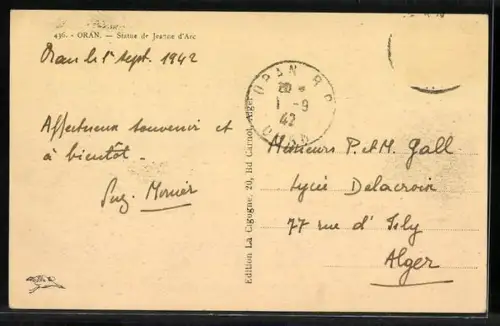 436. - ORAN. — Statue de Jeanne d'Arc
Oran le 1er sept. 1942
Affectueux souvenir et
à bientôt -
Edition La Cigogne, 20, Bd Carnot, Alger
ORAN R.P.
20 *
1 -9
42
ORAN
Messieurs P. et M. Gall
Lycée Delacroix
77 rue d'Isly
Alger